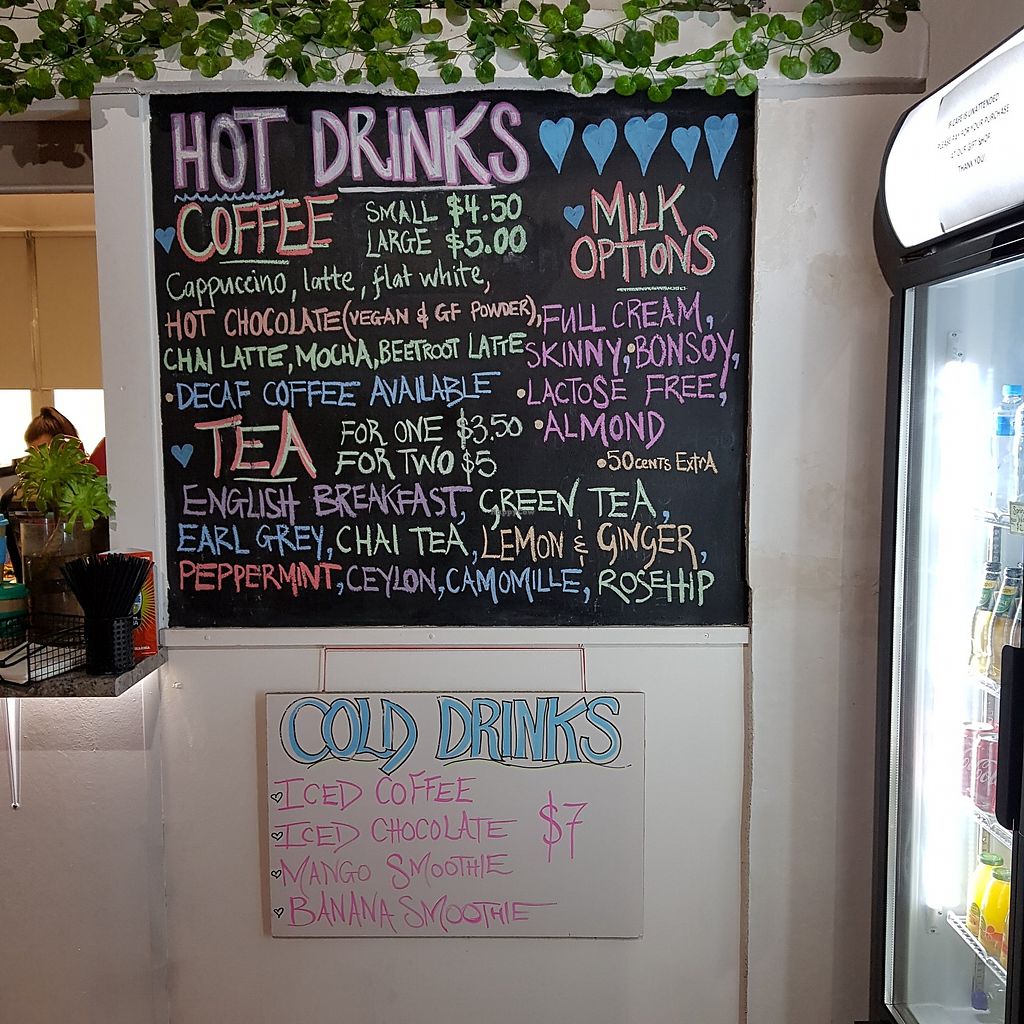 HOT DRINKS
COFFEE
SMALL $4.50
LARGE $5.00
Cappuccino, latte, flat white,
HOT CHOCOLATE (VEGAN & GF POWDER),
CHAI LATTE, MOCHA, BEETROOT LATTE
•DECAF COFFEE AVAILABLE
MILK
OPTIONS
FULL CREAM,
SKINNY, •BONSOY,
•LACTOSE FREE,
•ALMOND
•50CENTS EXTRA
TEA
FOR ONE $3.50
FOR TWO $5
ENGLISH BREAKFAST, GREEN TEA,
EARL GREY, CHAI TEA, LEMON & GINGER,
PEPPERMINT, CEYLON, CAMOMILLE, ROSEHIP
COLD DRINKS
ICED COFFEE
ICED CHOCOLATE $7
MANGO SMOOTHIE
BANANA SMOOTHIE
IF CAFE IS UNATTENDED
PLEASE PAY FOR YOUR PURCHASE
AT OUR GIFT SHOP.
THANK YOU!